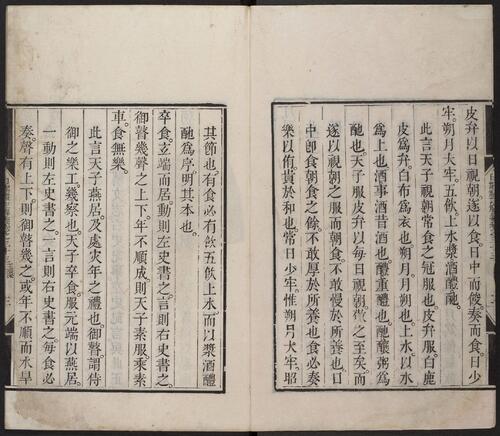 皮弁以日視朝。遂以食。日中而餕。奏而食。日少
牢。朔月大牢。五飮。上水漿酒醴酏。
此言天子視朝常食之冠服也。皮弁服。白鹿
皮爲弁。白布爲衣也。朔月。月朔也。上水。以水
爲上也。酒事酒昔酒也。醴重醴也。酏釀粥爲
酏也。天子服皮弁以每日視朝。敬之至矣。而
遂以視朝之服而朝食。不敢慢於所養也。日
中卽食朝食之餘。不敢厚於所養也。食必奏
樂以侑。貴於和也。常日少牢。惟朔月大牢。昭
其節也。有食必有飮。五飮上水。而以漿酒醴
酏爲序。明其本也。
卒食。玄端而居。動則左史書之。言則右史書之。
御瞽幾聲之上下。年不順成。則天子素服。乘素
車。食無樂。
此言天子燕居。及處災年之禮也。御瞽。謂侍
御之樂工。幾察也。天子卒食。服元端以燕居。
一動則左史書之。一言則右史書之。每食必
奏。聲有上下。則御瞽幾之。或年不順而水旱